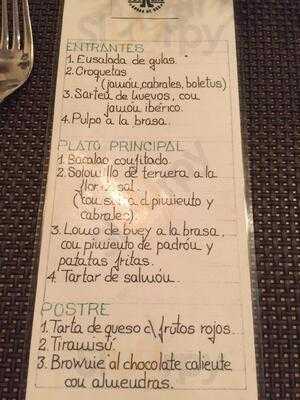 ENTRANTES
1. Ensalada de gulas.
2. Croquetas
(jamón, cabrales, boletus)
3. Sarten de huevos, con
jamón ibérico.
4. Pulpo a la brasa.
PLATO PRINCIPAL
1. Bacalao confitado.
2. Solomillo de ternera a la
flor sal.
(con salsa d pimiento y
cabrales).
3. Lomo de buey a la brasa,
con pimiento de padrón y
patatas fritas.
4. Tartar de salmón.
POSTRE
1. Tarta de queso c\ frutos rojos.
2. Tiramisú.
3. Brownie al chocolate caliente
con almendras.